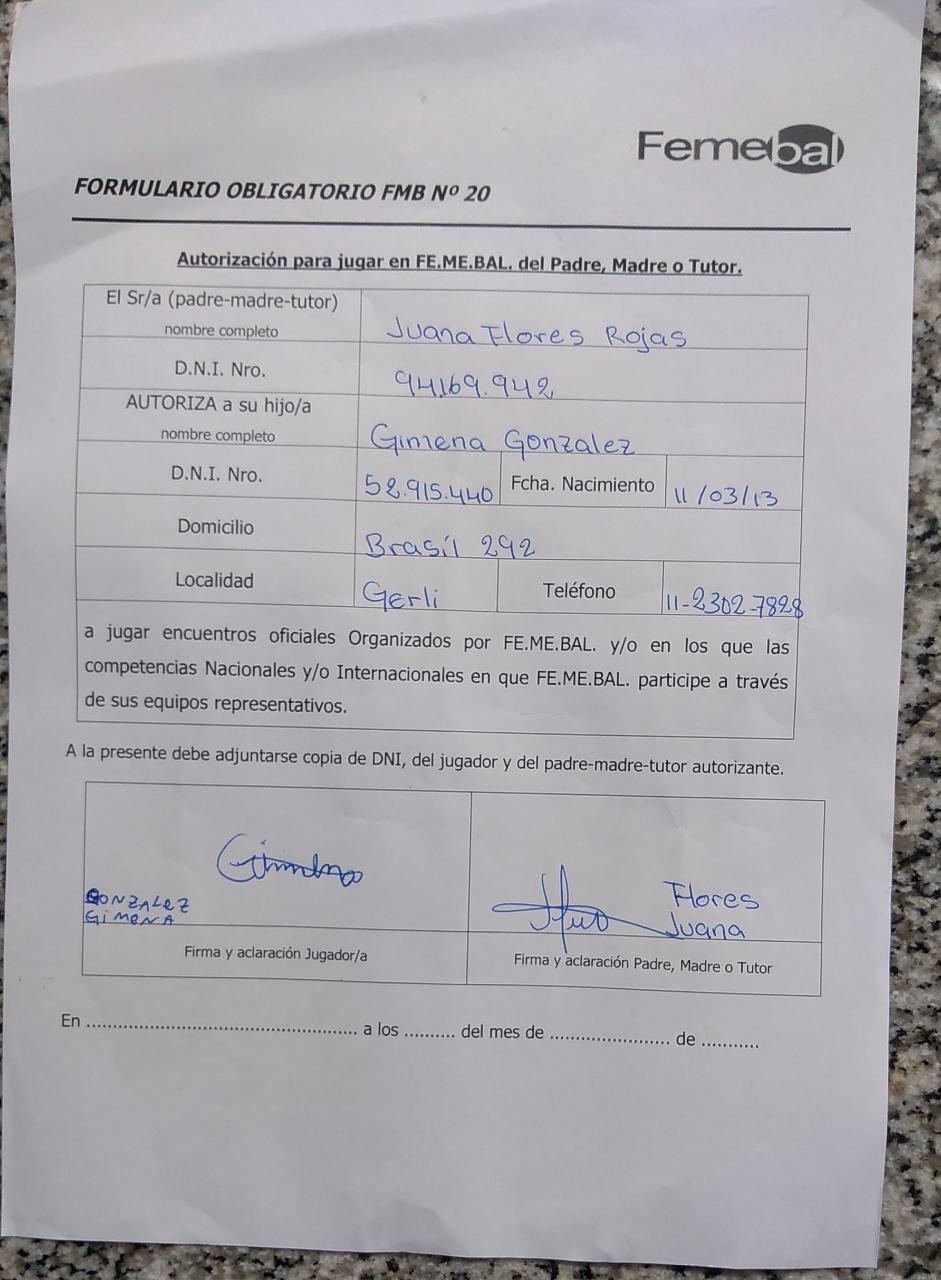 Femebal
FORMULARIO OBLIGATORIO FMB Nº 20
Autorización para jugar en FE.ME.BAL. del Padre, Madre o Tutor.
El Sr/a (padre-madre-tutor)
nombre completo
Juana Flores Rojas
D.N.I. Nro.
94.169.942
AUTORIZA a su hijo/a
nombre completo
Gimena Gonzalez
D.N.I. Nro.
52.915.440
Fcha. Nacimiento
11/03/13
Domicilio
Brasil 292
Localidad
Gerli
Teléfono
11-2302-7828
a jugar encuentros oficiales Organizados por FE.ME.BAL. y/o en los que las
competencias Nacionales y/o Internacionales en que FE.ME.BAL. participe a través
de sus equipos representativos.
A la presente debe adjuntarse copia de DNI, del jugador y del padre-madre-tutor autorizante.
GONZALEZ
GIMENA
Flores
Juana
Firma y aclaración Jugador/a
Firma y aclaración Padre, Madre o Tutor
En .................................................. a los .......... del mes de ....................... de ...........